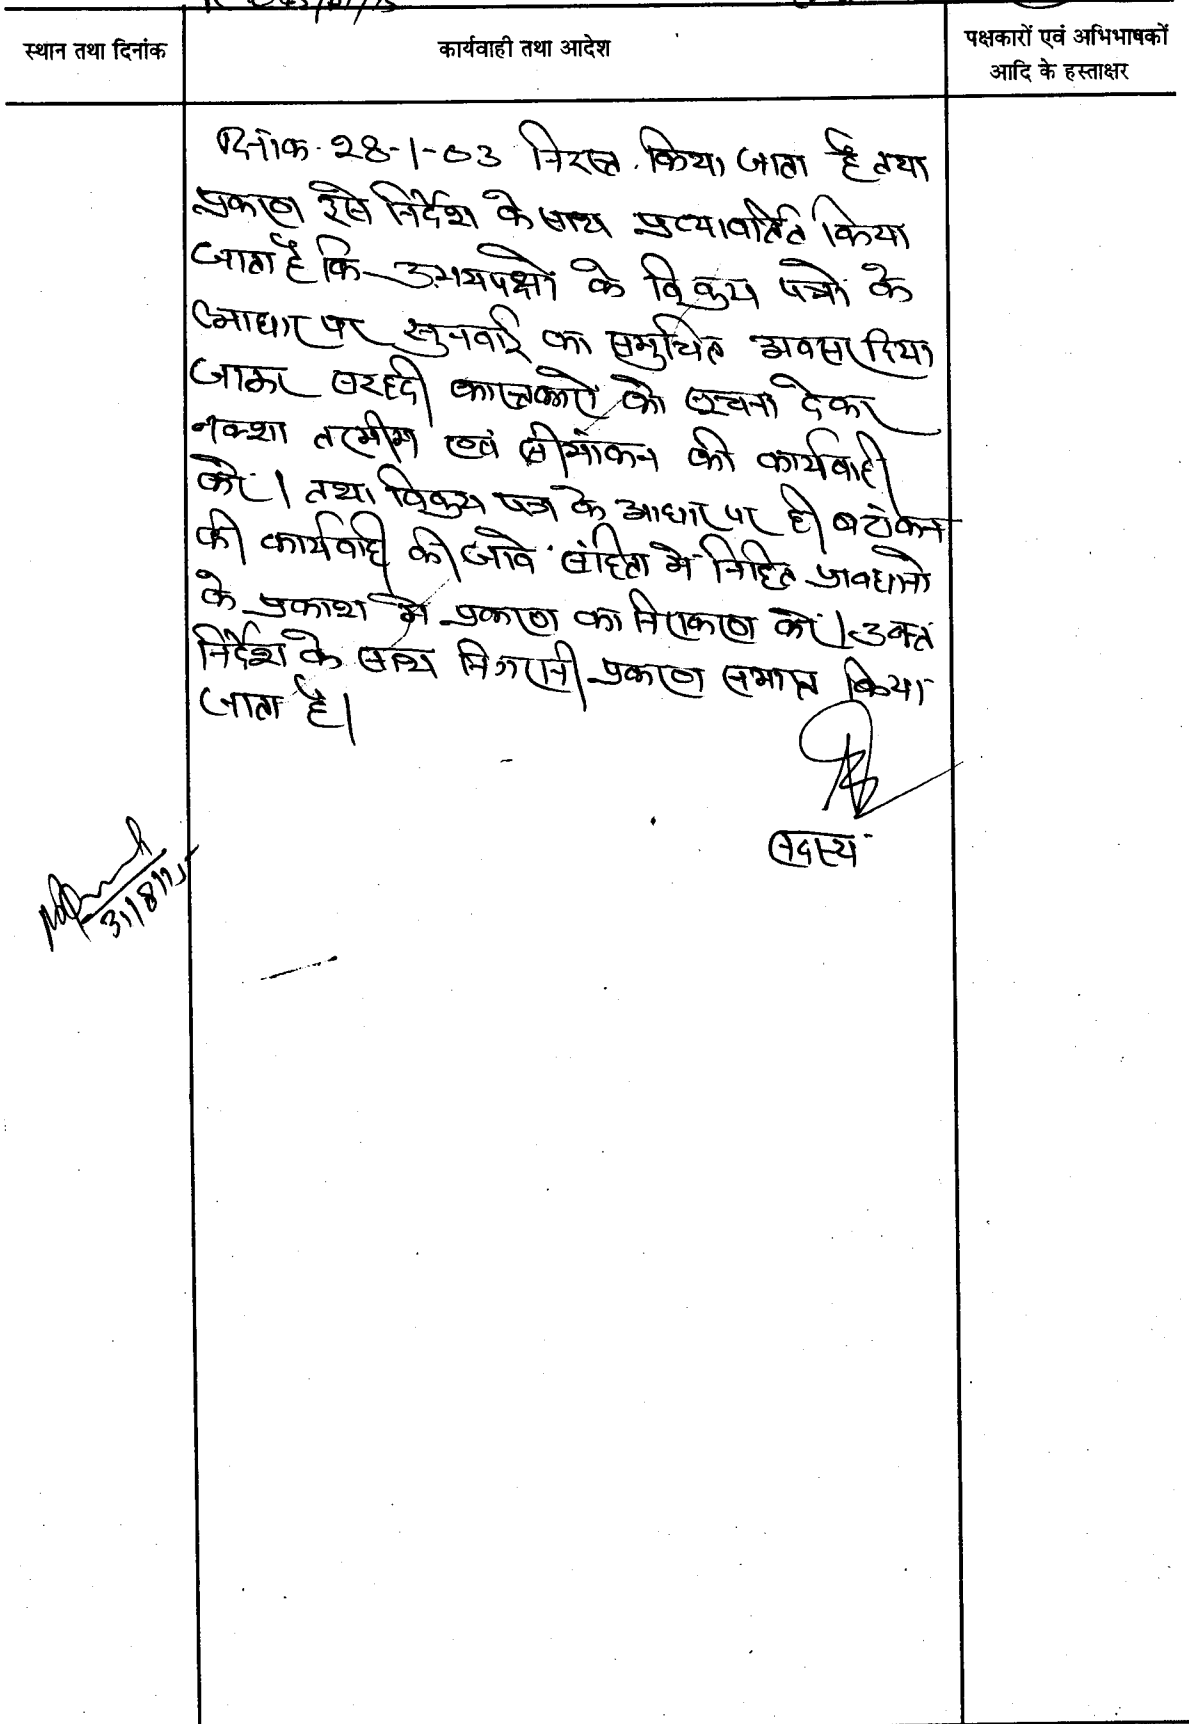 स्थान तथा दिनांक
कार्यवाही तथा आदेश
पक्षकारों एवं अभिभाषकों
आदि के हस्ताक्षर
दिनांक 28-1-03 निरस्त किया जाता है तथा
प्रकरण इस निर्देश के साथ प्रत्यावर्तित किया
जाता है कि उभयपक्षों के विक्रय पत्रो के
आधार पर सुनवाई का समुचित अवसर दिया
जाकर सरहदी काश्तकारो को सूचना देकर
नक्शा तरमीम एवं सीमांकन की कार्यवाही
करें। तथा विक्रय पत्र के आधार पर ही बटांकन
की कार्यवाही की जावे संहिता मे निहित प्रावधानो
के प्रकाश मे प्रकरण का निराकरण करें। उक्त
निर्देश के साथ निगरानी प्रकरण समाप्त किया
जाता है।
सदस्य
31/8/15